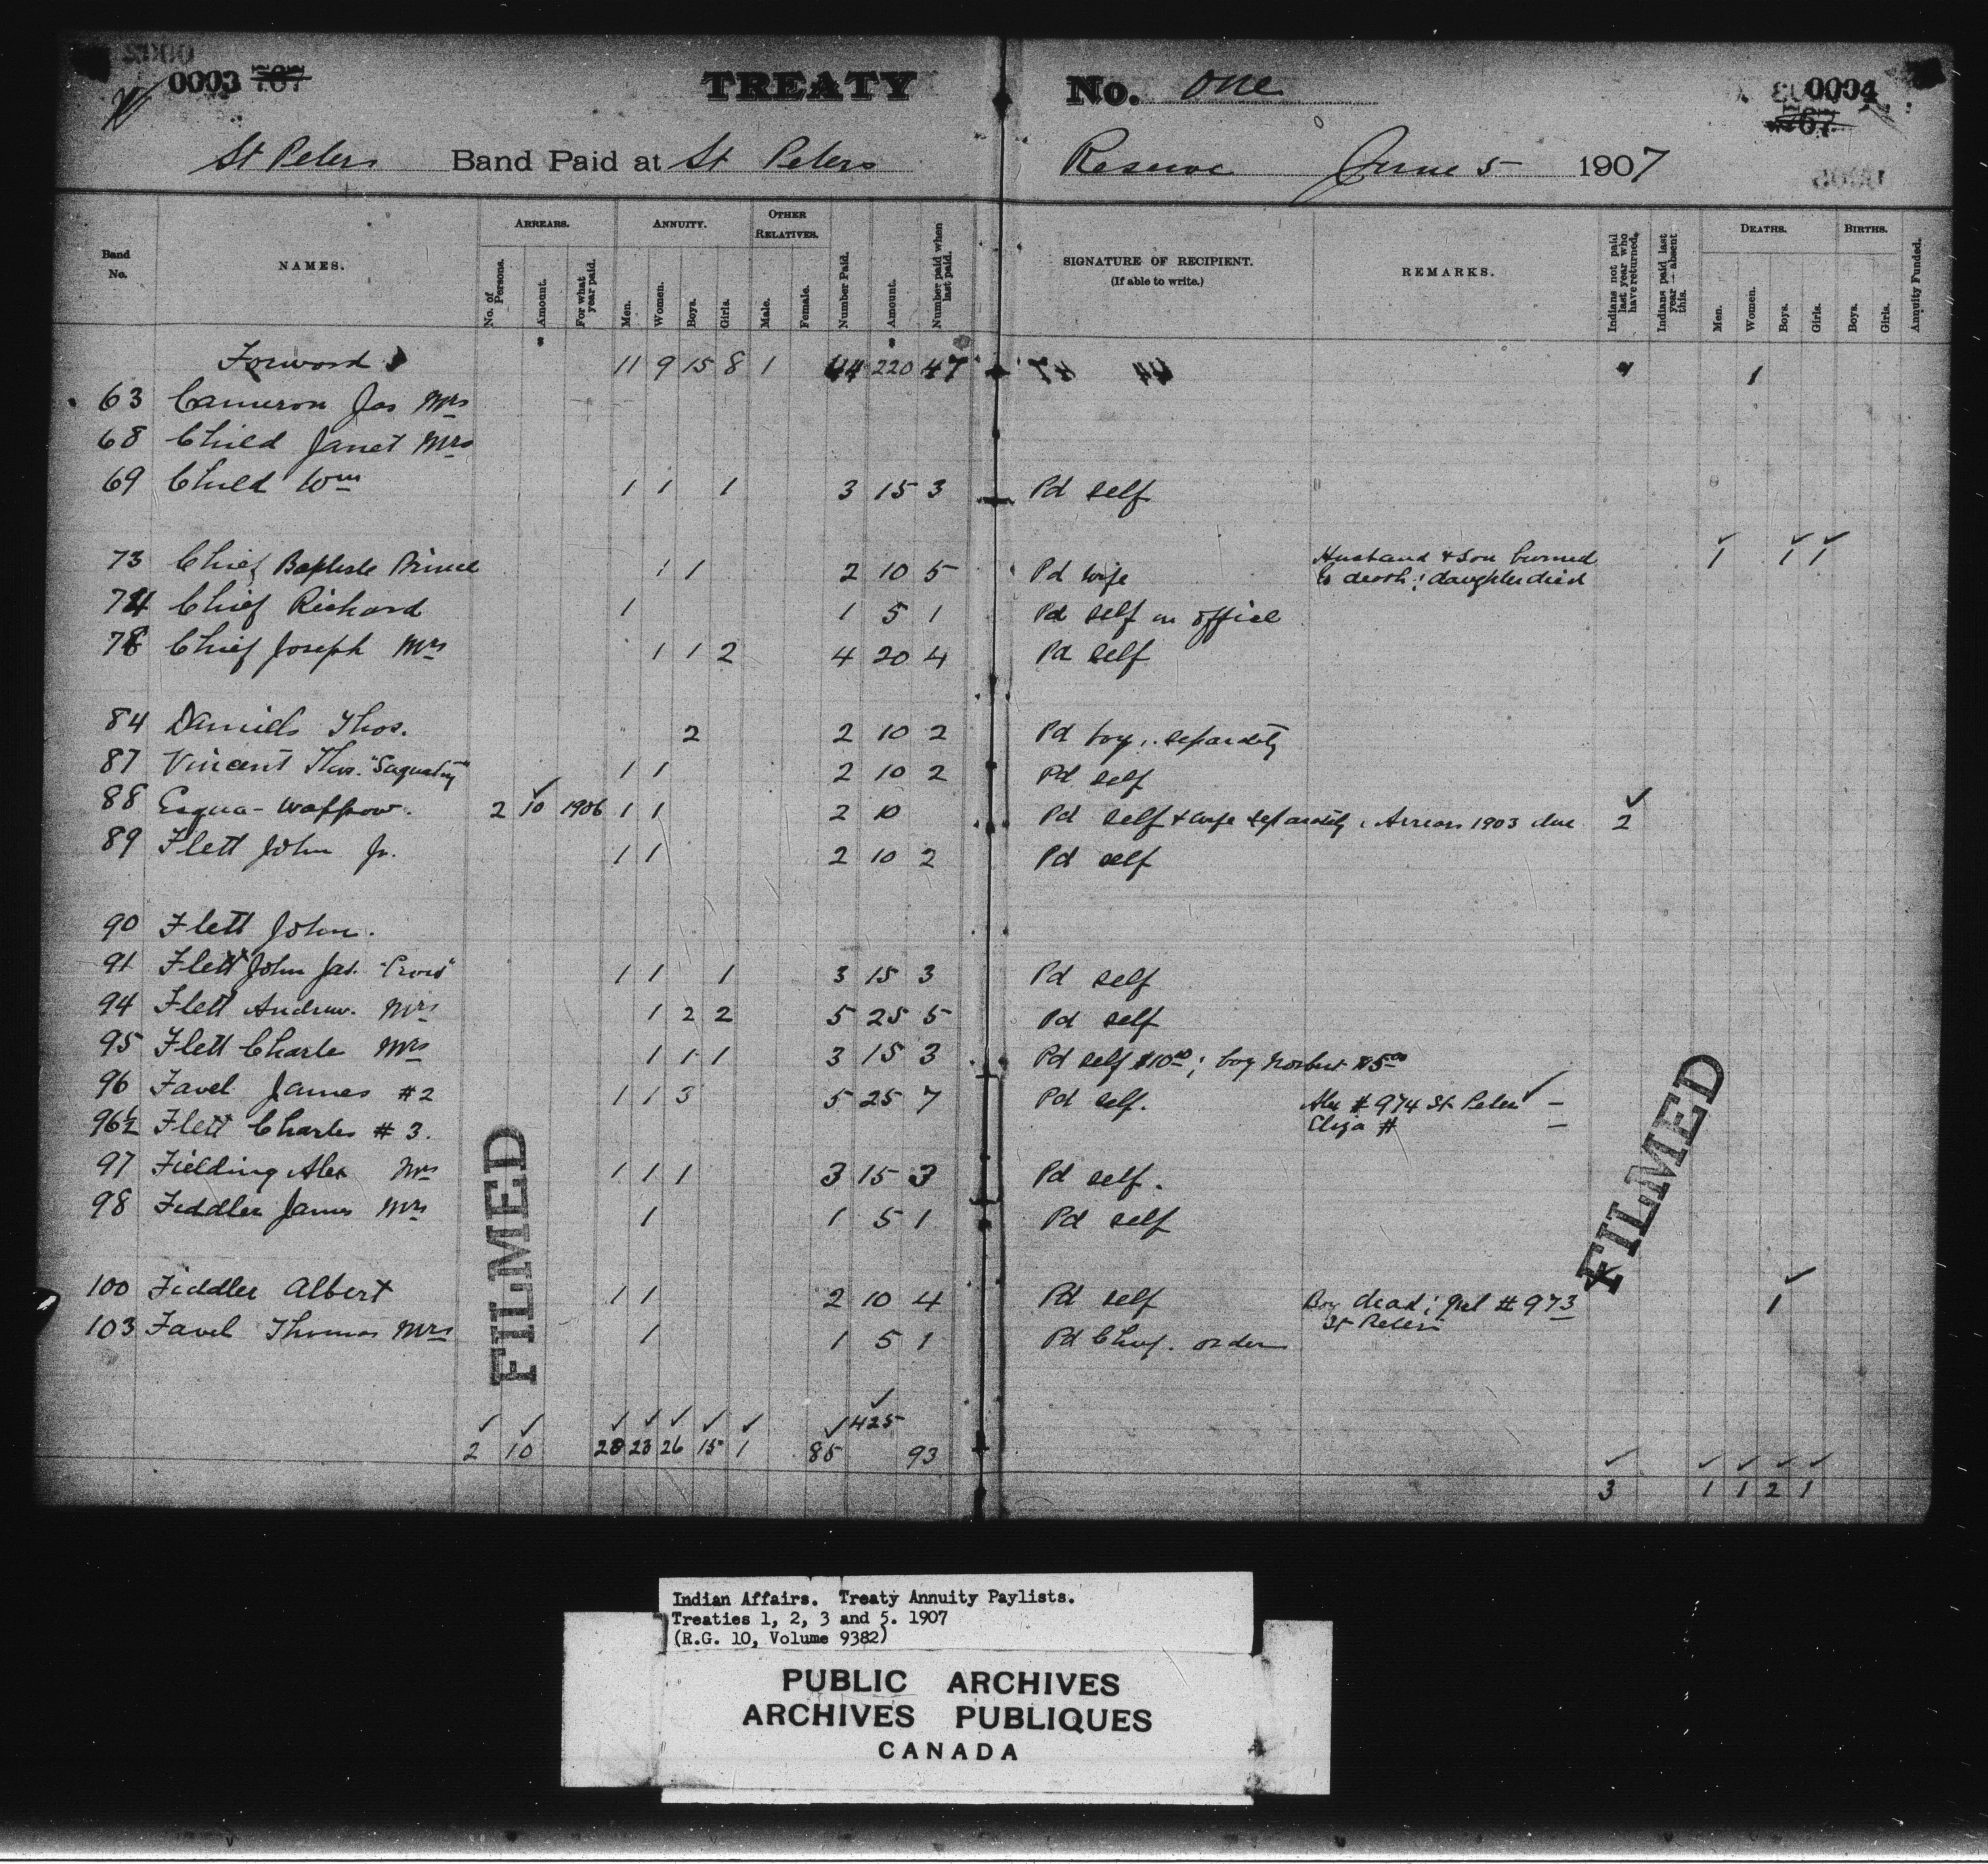 0003 767
TREATY No. One
0004
767
St Peters Band Paid at St Peters Reserve June 5 1907
Band No.
NAMES.
ARREARS.
No. of Persons.
Amount.
For what year paid.
ANNUITY.
Men.
Women.
Boys.
Girls.
OTHER RELATIVES.
Male.
Female.
Number Paid.
Amount.
Number paid when last paid.
SIGNATURE OF RECIPIENT.
(If able to write.)
REMARKS.
Indians not paid last year who have returned.
Indians paid last year — absent this.
DEATHS.
Men.
Women.
Boys.
Girls.
BIRTHS.
Boys.
Girls.
Annuity Funded.
Forward 11 9 15 8 1 44 220 47 1 1
63 Cameron Jas Mrs
68 Child Janet Mrs
69 Child Wm 1 1 1 3 15 3 Pd self
73 Chief Baptiste Prince 1 1 2 10 5 Pd wife Husband & Son burned 1 1 1
to death; daughter died
74 Chief Richard 1 1 5 1 Pd self in office
78 Chief Joseph Mrs 1 1 2 4 20 4 Pd self
84 Daniels Thos. 2 2 10 2 Pd boys separately
87 Vincent Thos. 1 1 2 10 2 Pd self
88 Esqua-wappow. 2 10 1906 1 1 2 10 Pd self & wife separately. Arrears 1903 due 2
89 Flett John Jr. 1 1 2 10 2 Pd self
90 Flett John.
91 Flett John Jas. 1 1 1 3 15 3 Pd self
94 Flett Andrew. Mrs 1 2 2 5 25 5 Pd self
95 Flett Charle Mrs 1 1 1 3 15 3 Pd self $10.00; boy Norbert $5.00
96 Favel James #2 1 1 3 5 25 7 Pd self. Alex #974 St Peters —
Eliza # —
96½ Flett Charles #3.
97 Fielding Alex Mrs 1 1 1 3 15 3 Pd self.
98 Fiddler James Mrs 1 1 5 1 Pd self
100 Fiddler Albert 1 1 2 10 4 Pd self Boy dead; girl #973 1
St Peters
103 Favel Thomas Mrs 1 1 5 1 Pd Chief. order
425
2 10 20 23 26 15 1 85 93
3 1 1 2 1
FILMED
FILMED
Indian Affairs. Treaty Annuity Paylists.
Treaties 1, 2, 3 and 5. 1907
(R.G. 10, Volume 9382)
PUBLIC ARCHIVES
ARCHIVES PUBLIQUES
CANADA